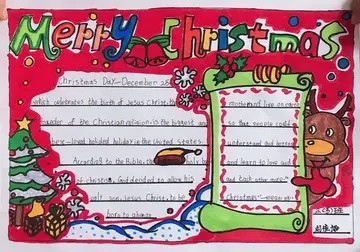 Merry Christmas
Christmas Day-December 25
which celebrates the birth of Jesus Christ, the
founder of the Christian religion is the biggest and
best-loved holiday in the United States.
According to the Bible, the holy
of christian, God decided to allow his
only son, Jesus Christ, to be
born to a human
mother and live on earth
so that people could
understand God better
and learn to love God
and each other more."
Christmas"-meaning
班